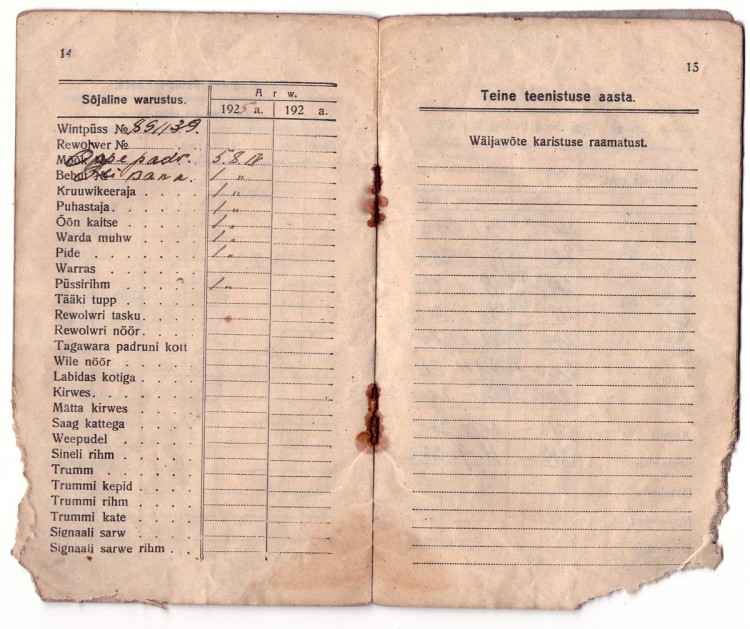 14
Sõjaline warustus.
A r w.
1925 a. 192 a.
Wintpüss № 
Rewolwer №
Mõõk padr. 5.8.IV
Bebut 1 "
Kruuwikeeraja 1 "
Puhastaja 1 "
Õõn kaitse 1 "
Warda muhw 1 "
Pide 1 "
Warras
Püssirihm 1 "
Tääki tupp
Rewolwri tasku
Rewolwri nöör
Tagawara padruni kott
Wile nöör
Labidas kotiga
Kirwes
Mätta kirwes
Saag kattega
Weepudel
Sineli rihm
Trumm
Trummi kepid
Trummi rihm
Trummi kate
Signaali sarw
Signaali sarwe rihm
15
Teine teenistuse aasta.
Wäljawõte karistuse raamatust.